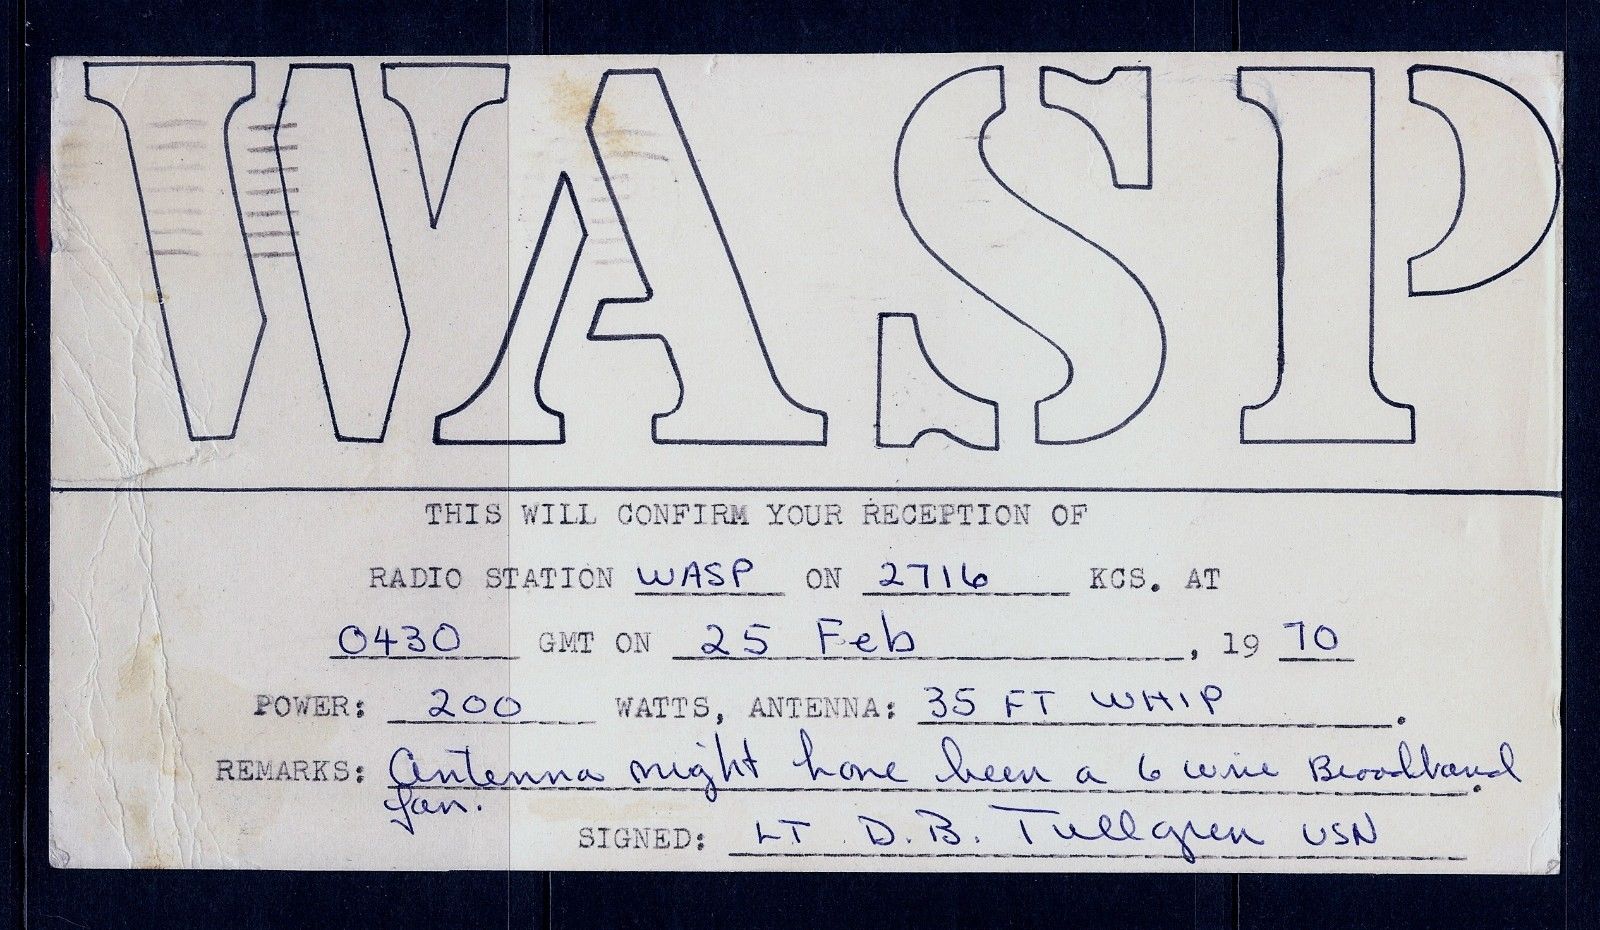 WASP
THIS WILL CONFIRM YOUR RECEPTION OF
RADIO STATION WASP ON 2716 KCS. AT
0430 GMT ON 25 Feb, 19 70
POWER: 200 WATTS, ANTENNA: 35 FT WHIP.
REMARKS: Antenna might have been a 6 wire Broadband.
fan.
SIGNED: LT D. B. Tullgren USN